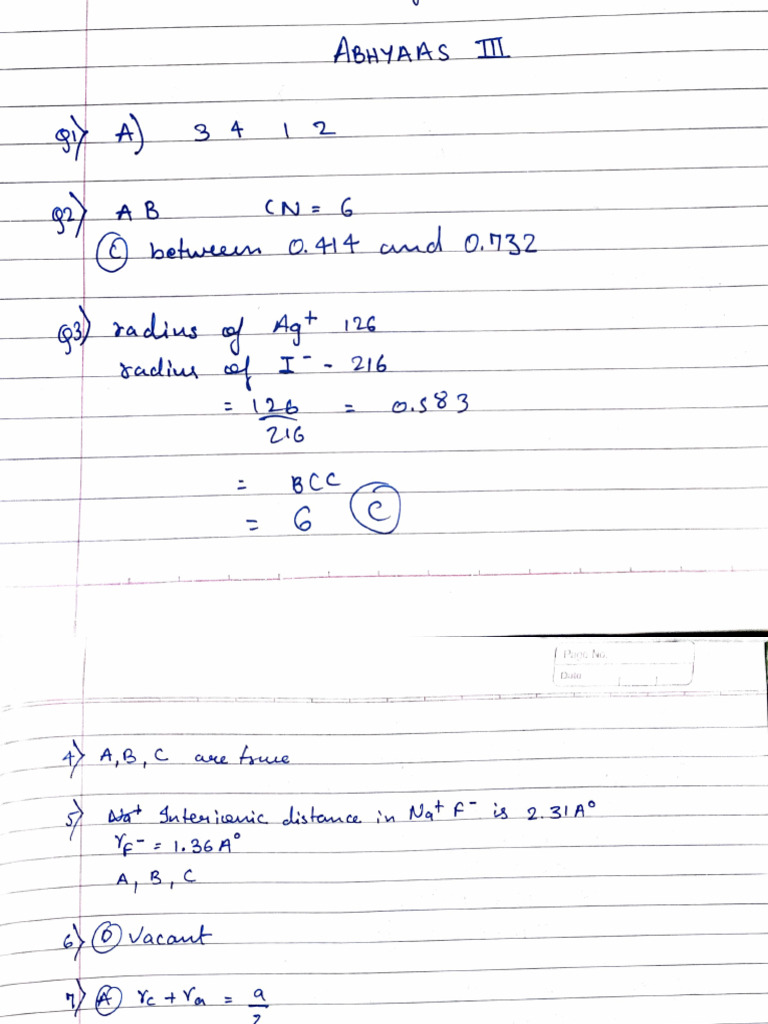 ABHYAAS III
Q1) A) 3 4 1 2
Q2) AB CN = 6
(C) between 0.414 and 0.732
Q3) radius of Ag+ 126
radius of I- - 216
= 126/216 = 0.583
= BCC
= 6 (C)
Page No.
Date
4) A, B, C are true
5) Interionic distance in Na+ F- is 2.31A°
rF- = 1.36A°
A, B, C
6) (D) Vacant
7) (A) rc + ra = a/2